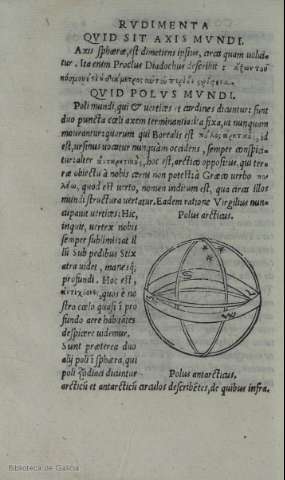 RVDIMENTA
QVID SIT AXIS MVNDI.
Axis sphæræ, est dimetiens ipsius, circa quam uolui-
tur. Ita enim Proclus Diadochus describit:
QVID POLVS MVNDI.
Poli mundi, qui & uertices et cardines dicuntur: sunt
duo puncta cœli axem terminantia, fixa, ut nunquam
moueantur: quorum qui Borealis est id
est, ursinus uocatur nunquam occidens, semper conspici-
tur: alter hoc est, arctico oppositus, qui ter-
ræ obiectu à nobis cerni non potest: à Græco uerbo πο-
λέω, quod est uerto, nomen inditum est, qua circa illos
mundi structura uertatur. Eadem ratione Virgilius nun-
cupauit uertices: Hic,
Polus arcticus.
inquit, uertex nobis
semper sublimis: at il-
lū Sub pedibus Stix
atra uidet, manesq́;
profundi. Hoc est,
quos è no
stro cœlo quasi ī pro
fundo aere hābitātes
despicere uidemur.
Sunt præterea duo
alij poli ī sphæra, qui
poli zodiaci dicuntur
Polus antarcticus.
arcticū et antarcticū circulos describētes, de quibus infra.
Biblioteca de Galicia